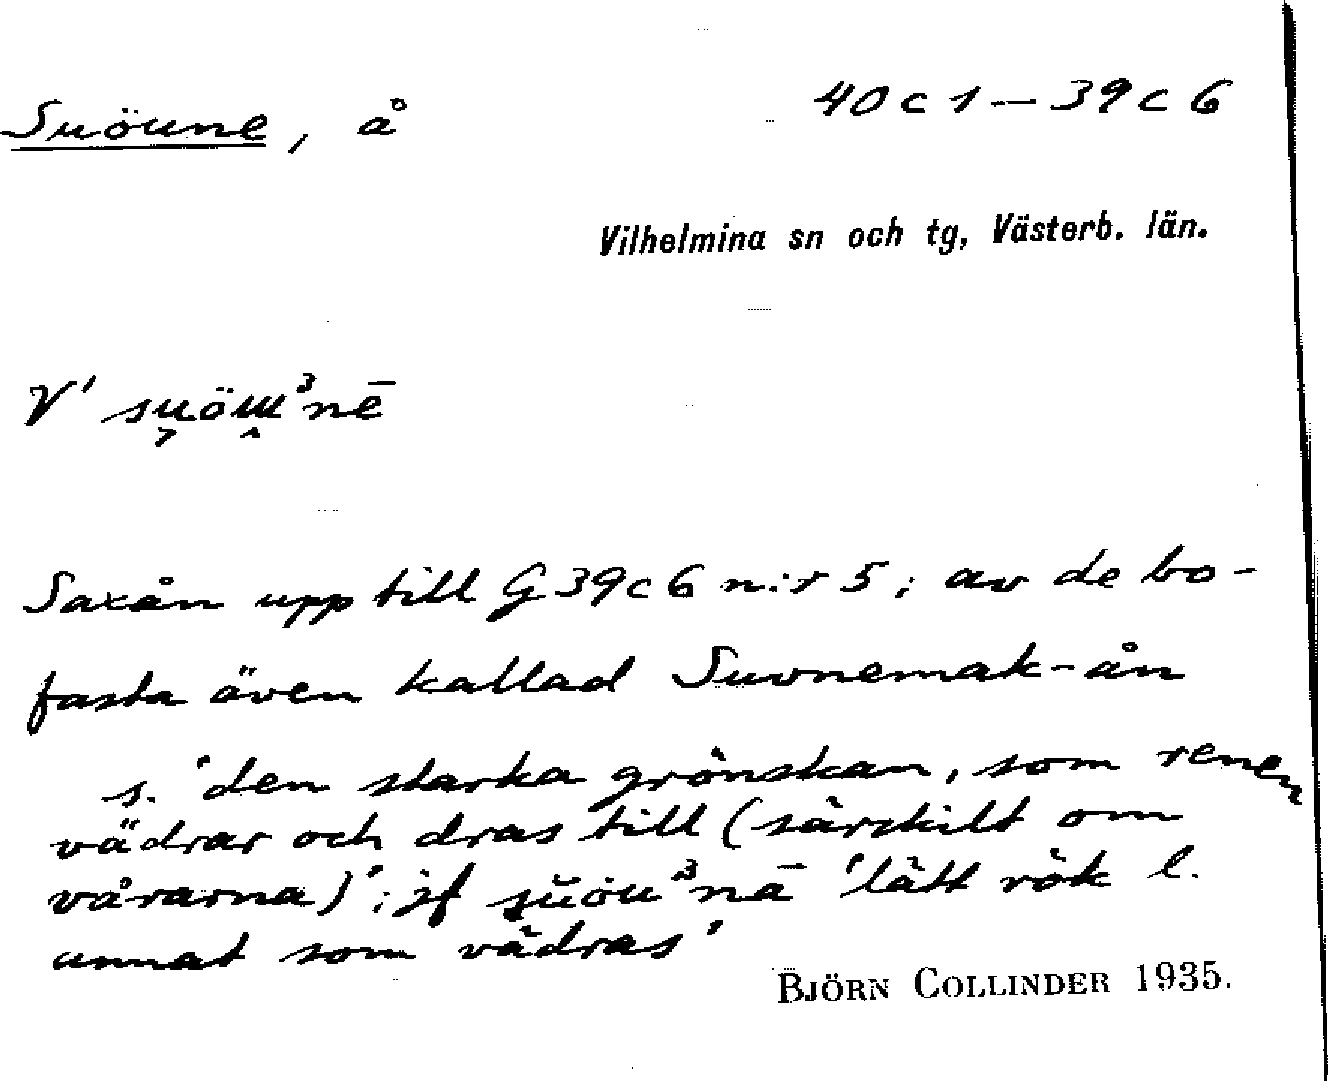 Suöune, å
40 c 1 — 39 c 6
Vilhelmina sn och tg, Västerb. län.
V'
Saxån upp till G 39 c 6 n:r 5; av de bo-
fasta även kallad Suvnemak-ån
s. 'den starka grönskan, som renen
vädrar och dras till (särskilt om
vårarna)'; jf 'lätt rök l.
annat som vädras'
BJÖRN COLLINDER 1935.